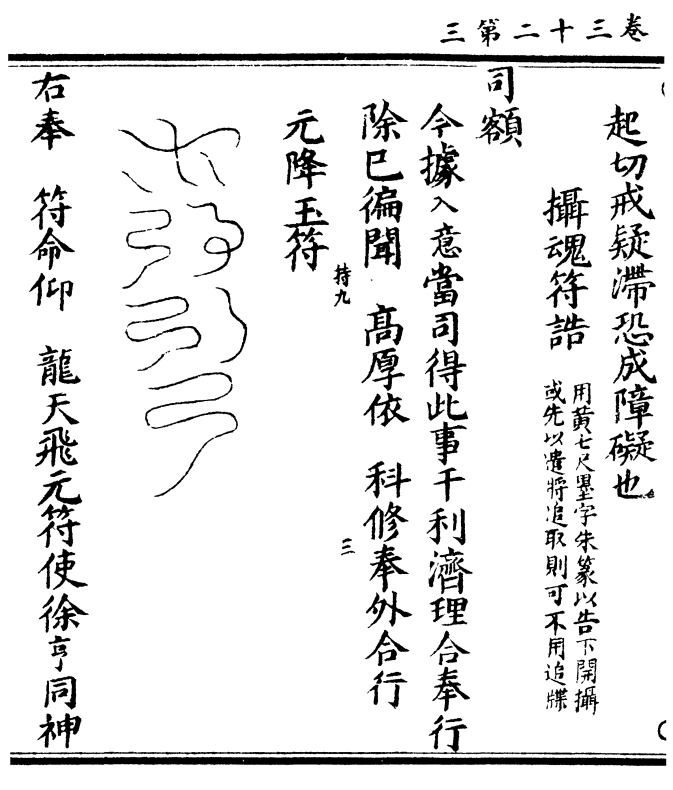 卷三十二第三
起切戒疑滯恐成障礙也
攝魂符誥
用黃七尺墨字朱篆以告下開攝
或先以遣將追取則可不用追牒
司額
今據入意當司得此事干利濟理合奉行
除已徧聞　高厚依　科修奉外合行
持九
三
元降玉符
右奉　符命仰　龍天飛元符使徐亨同神